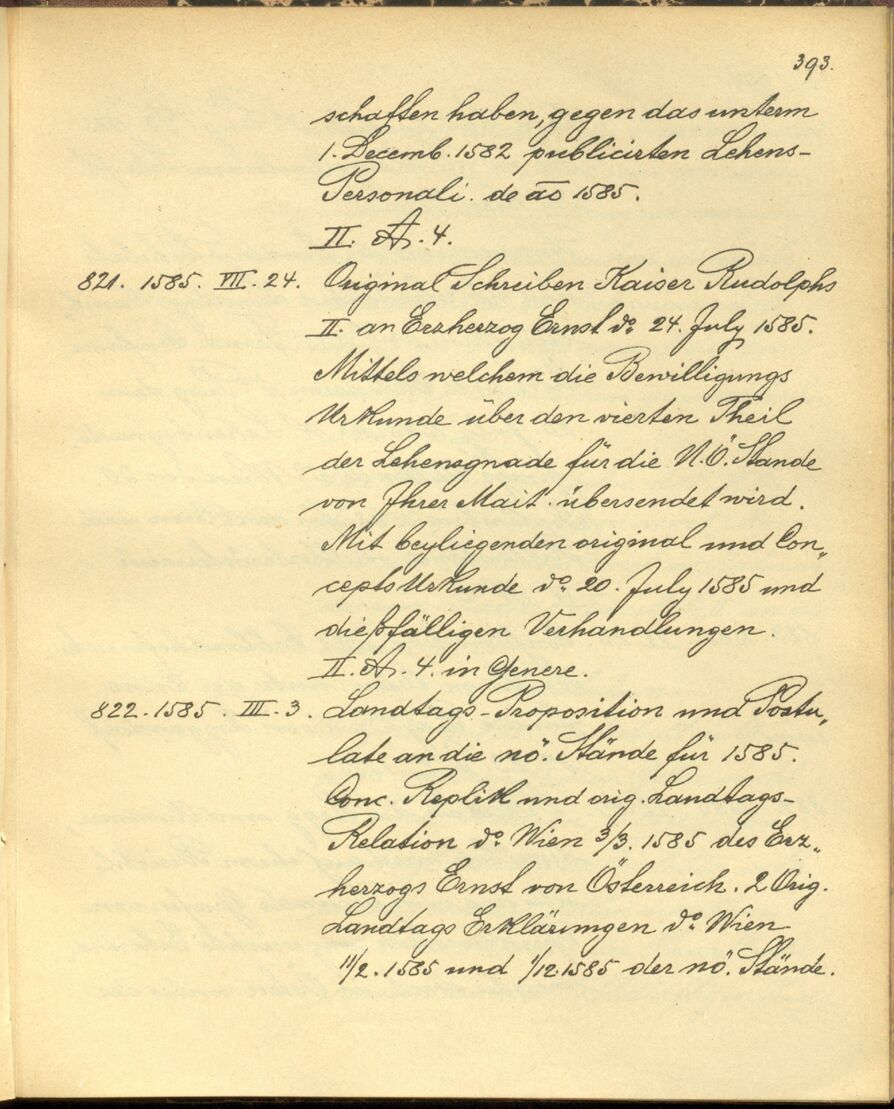 393.
schaften haben, gegen das unterm
1. Decemb. 1582 publicirten Lehens-
Personali. de ao 1585.
II. A. 4.
821. 1585. VII. 24. Original Schreiben Kaiser Rudolphs
II. an Erzherzog Ernst do. 24. July 1585.
Mittels welchem die Bewilligungs
Urkunde über den vierten Theil
der Lehensgnade für die N.Ö. Stände
von Ihrer Mait. übersendet wird.
Mit beyliegenden original und Con„
cepts Urkunde do. 20. July 1585 und
dießfälligen Verhandlungen.
II. A. 4. in Genere.
822. 1585. III. 3. Landtags-Proposition und Postu„
late an die nö. Stände für 1585.
Conc. Replik und orig. Landtags-
Relation do. Wien 3/3. 1585 des Erz„
herzogs Ernst von Österreich. 2 Orig.
Landtags Erklärungen do. Wien
11/2. 1585 und 1/12. 1585 der nö. Stände.